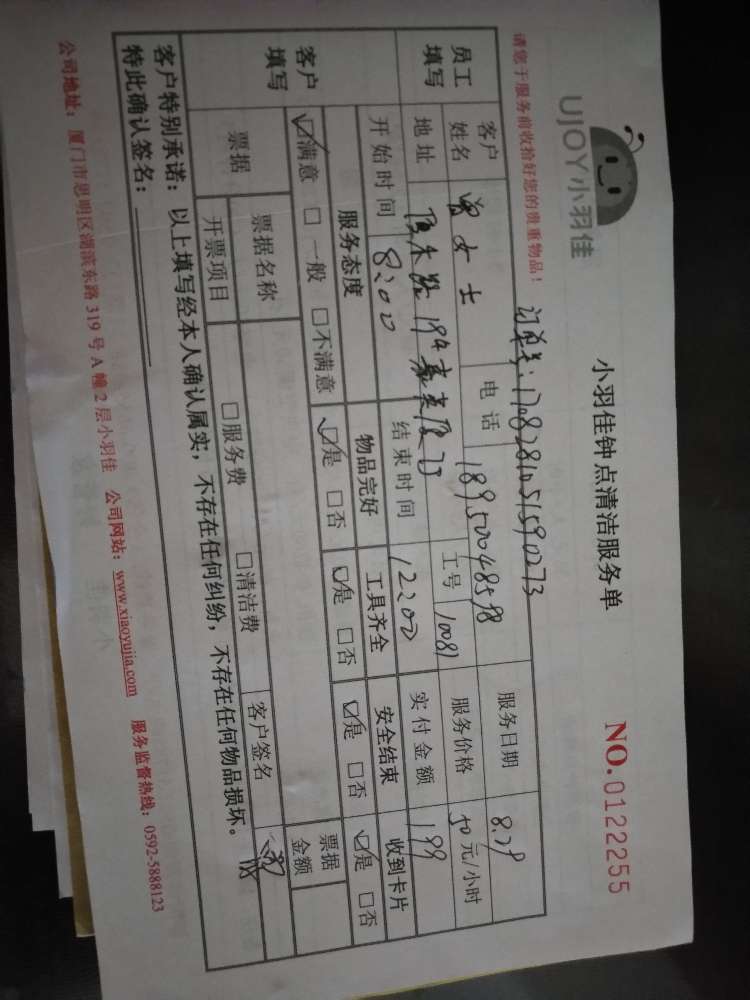 UJOY小羽佳
小羽佳钟点清洁服务单
NO.0122255
请您于服务前收拾好您的贵重物品！
订单号：17082810515590273
员工填写
客户姓名 曾女士 电话 18950048598 服务日期 8.29
地址 194 工号 10081 服务价格 50元/小时
开始时间 8:00 结束时间 12:00 实付金额 199
客户填写
服务态度 物品完好 工具齐全 安全结束 收到卡片
☑满意 □一般 □不满意 ☑是 □否 ☑是 □否 ☑是 □否 ☑是 □否
票据 票据名称 票据金额
开票项目 □服务费 □清洁费 客户签名
客户特别承诺：以上填写经本人确认属实，不存在任何纠纷，不存在任何物品损坏。
特此确认签名：
公司地址：厦门市思明区湖滨东路319号A幢2层小羽佳 公司网站：www.xiaoyujia.com 服务监督热线：0592-5888123